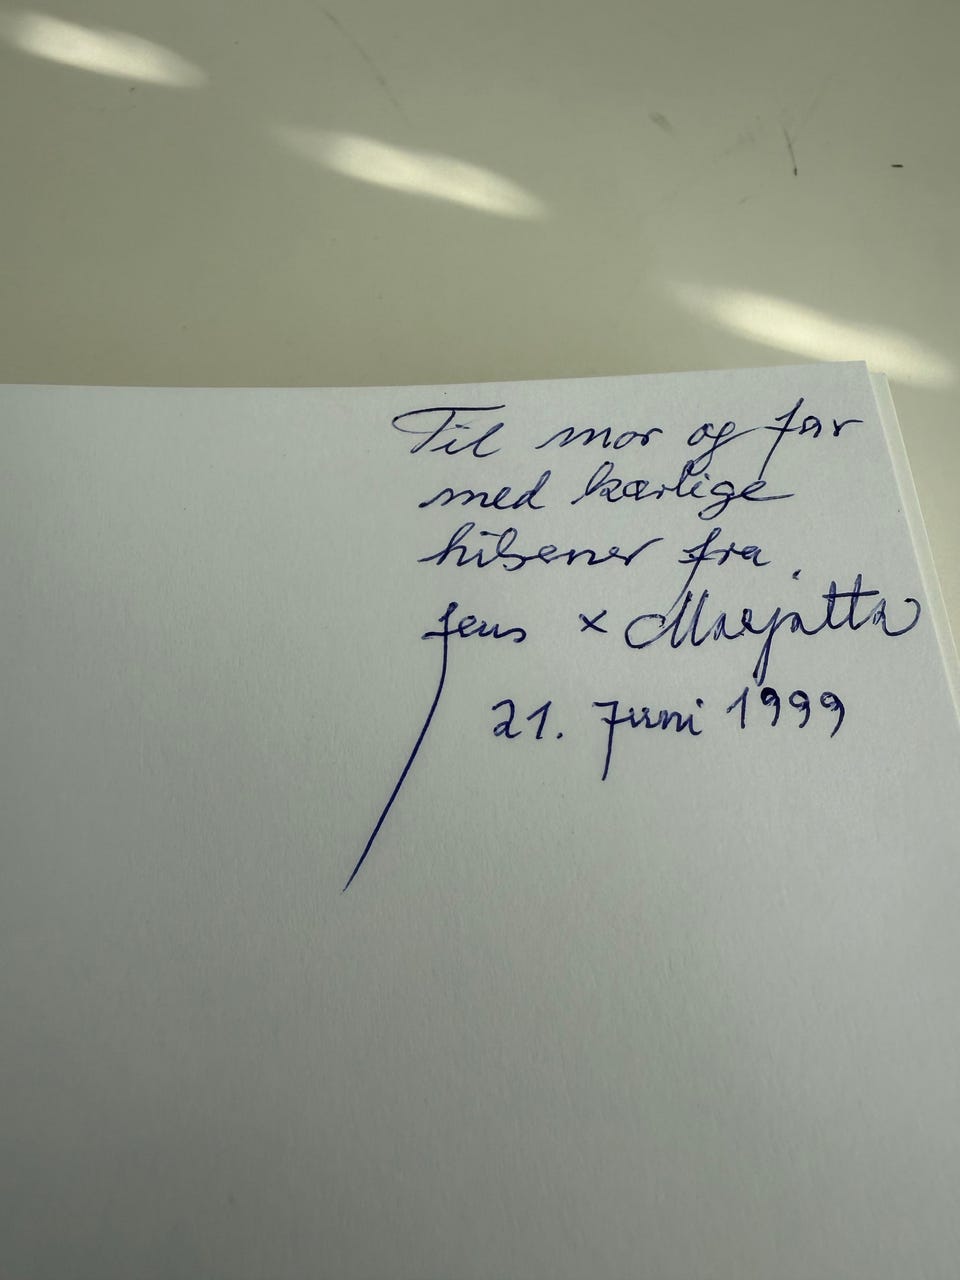 Til mor og far
med kærlige
hilsener fra
Jens x Marjatta
21. Juni 1999